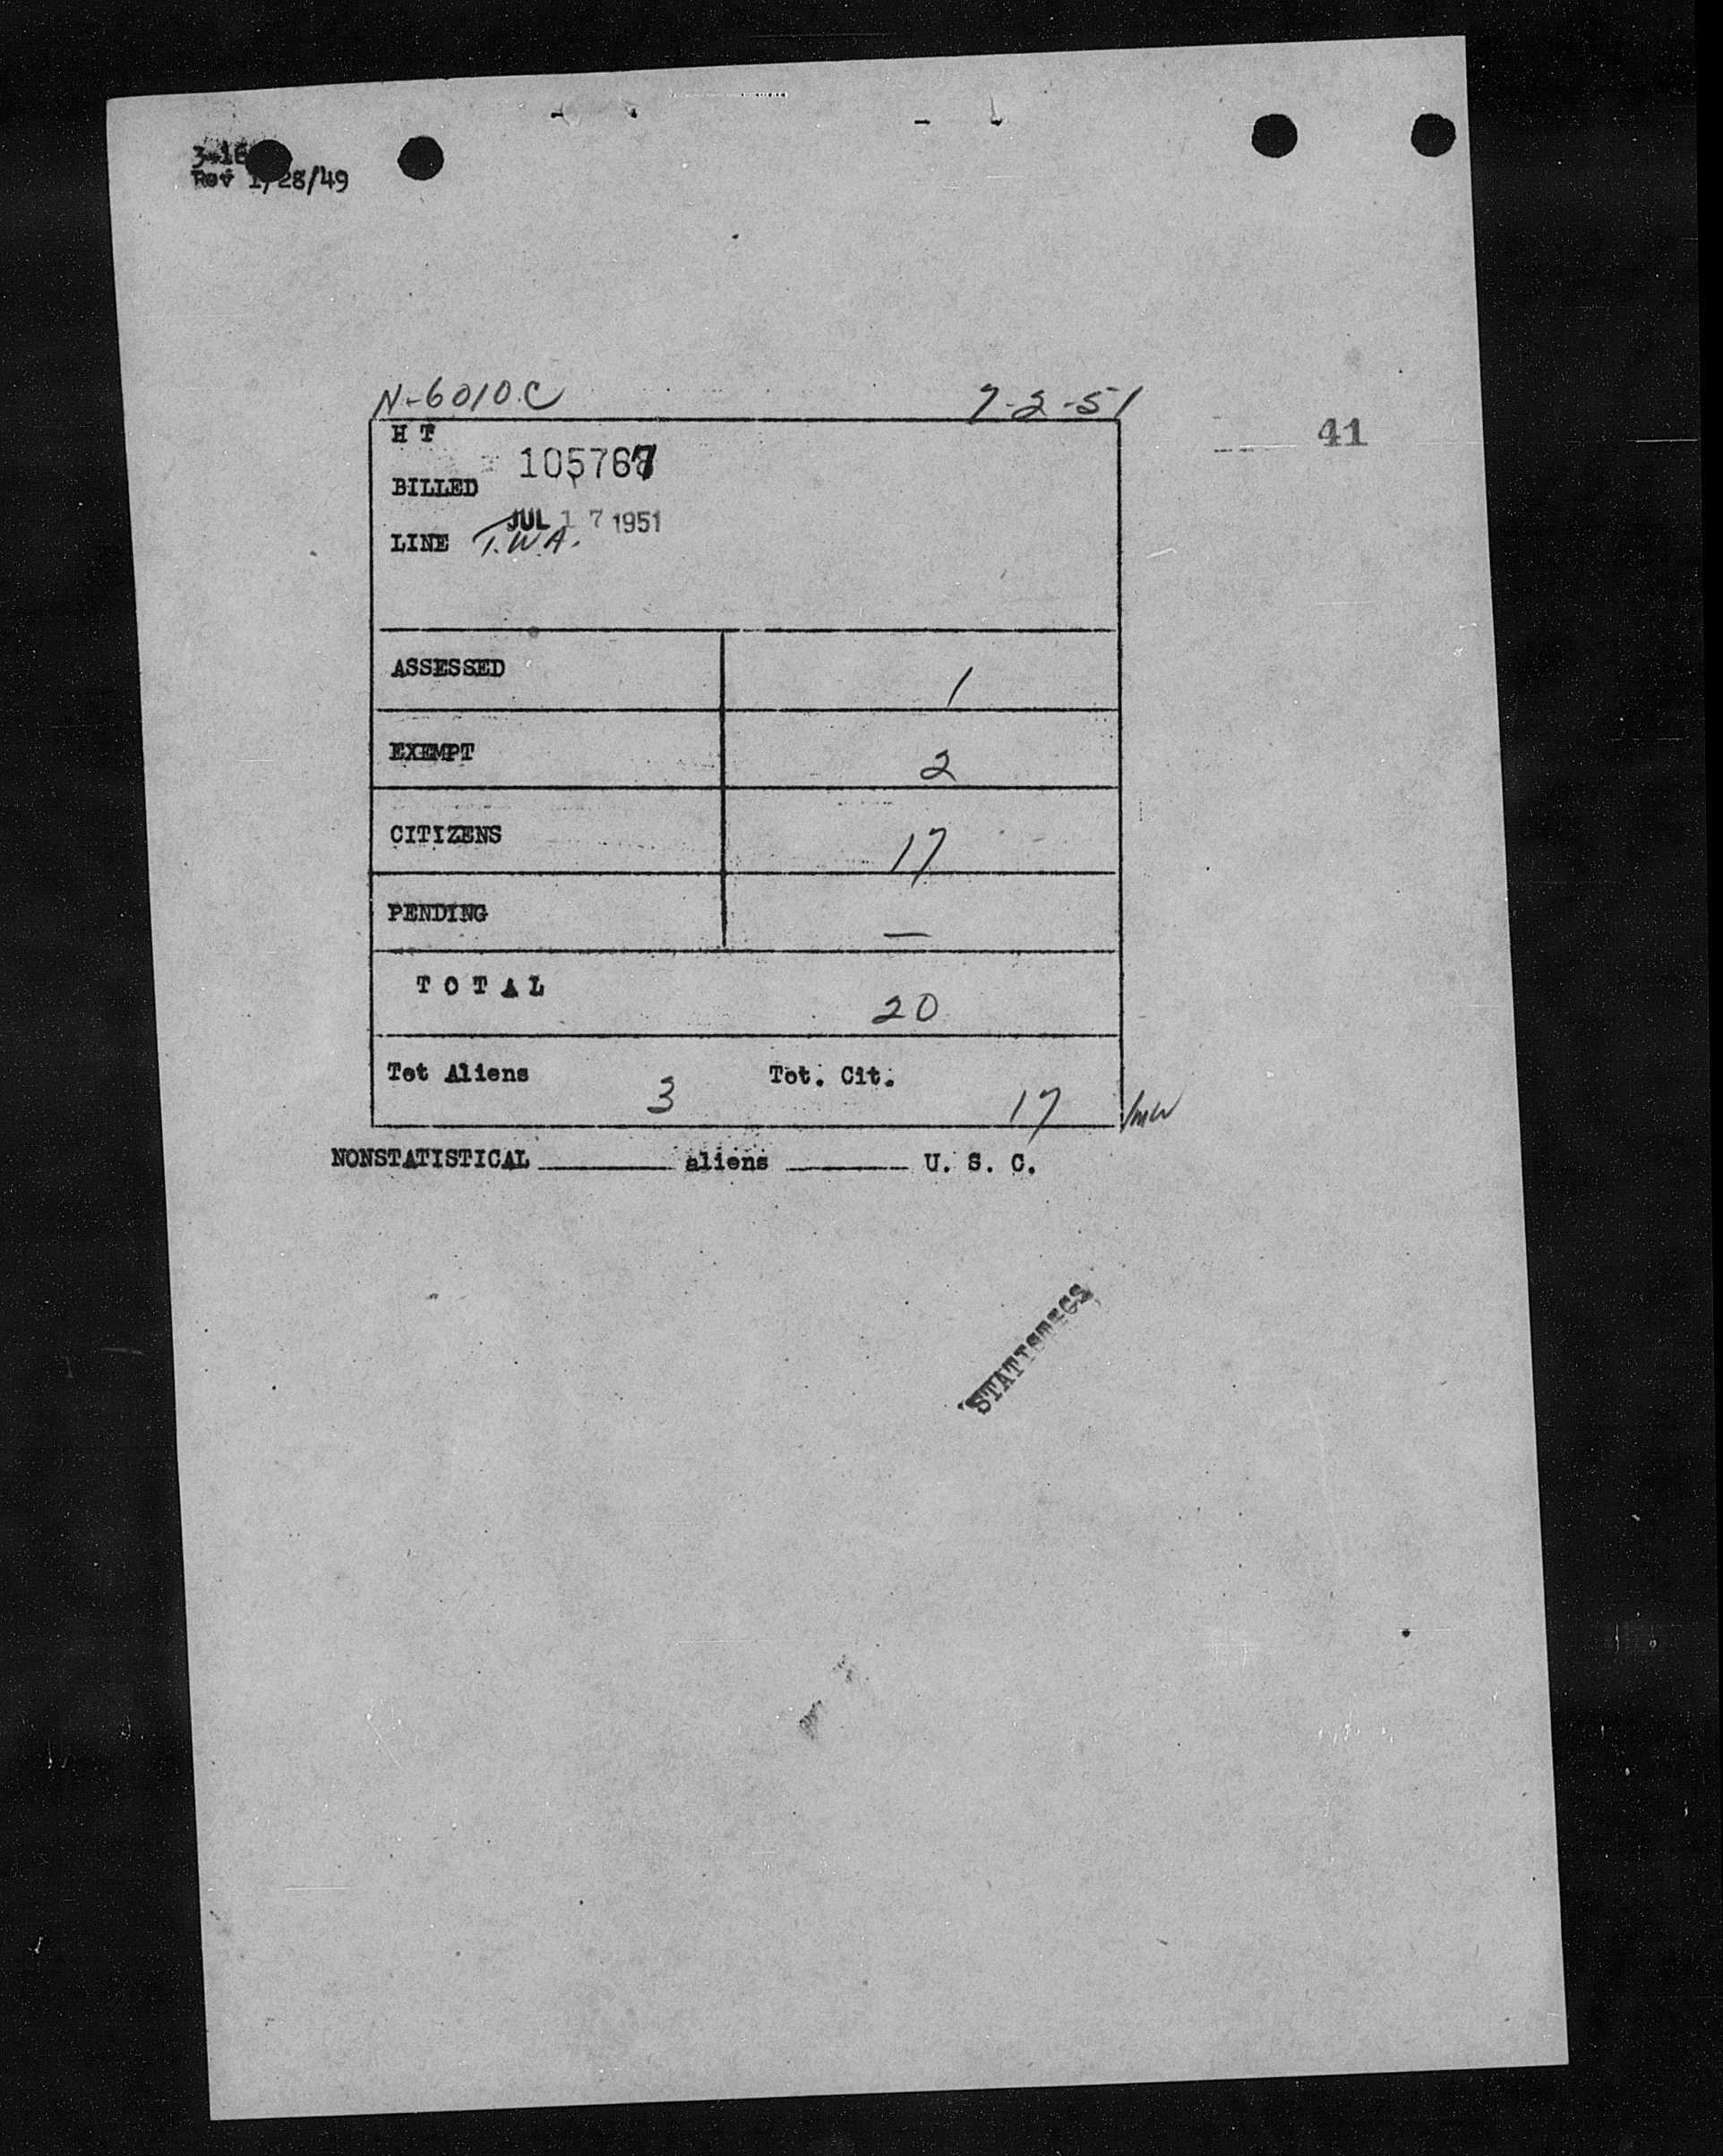 Rev 1/28/49
N-6010.C 7-2-51
41
H T
BILLED
JUL 17 1951
LINE T.W.A.
ASSESSED 1
EXEMPT 2
CITIZENS 17
PENDING —
T O T A L 20
Tot Aliens 3 Tot. Cit. 17
NONSTATISTICAL ________ aliens ________ U. S. C.
STATISTICS